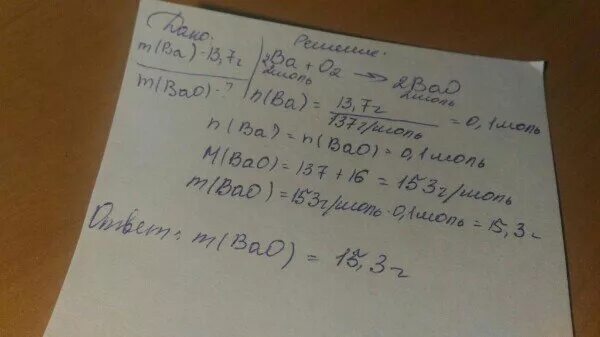 Дано:
Решение.
m(Ba)-13,7г
m(BaO)-?
2Ba + O2 → 2BaO
2моль 2моль
n(Ba) = 13,7г / 137г/моль = 0,1моль
n(Ba) = n(BaO) = 0,1моль
M(BaO) = 137 + 16 = 153г/моль
m(BaO) = 153г/моль · 0,1моль = 15,3г
Ответ: m(BaO) = 15,3г